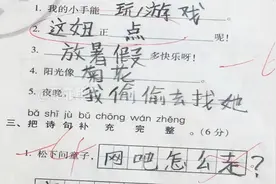 1. 我的小手能 玩游戏
2. 这妞正点呢!
3. 放暑假多快乐呀!
4. 阳光像 菊花
5. 夜晚,我偷偷去找她
bǎ shī jù bǔ chōng wán zhěng
三、把诗句补充完整。(6分)
1. 松下问童子, 网吧怎么走?